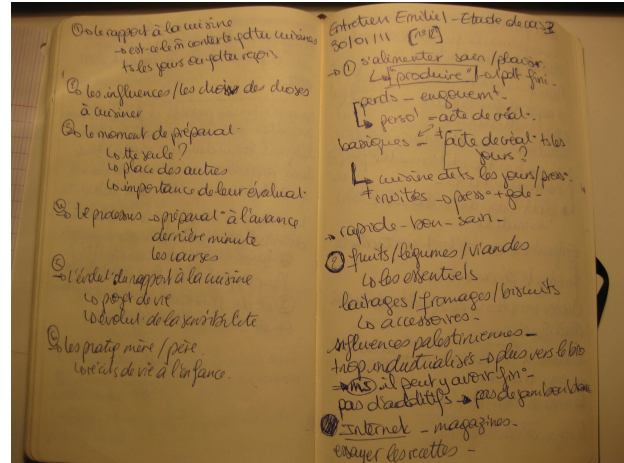 ① Le rapport à la cuisine
→ est-ce le m̂ contexte qd tu cuisines
ts les jours ou qd tu reçois
② Les influences / les choix des choses
à cuisiner
③ Le moment de préparat°
↳ tte seule ?
↳ place des autres
↳ importance de leur évaluat°
④ Le processus → préparat° à l'avance
dernière minute
les courses
⑤ L'évolut° du rapport à la cuisine
↳ projet de vie
↳ évolut° de la sensibilité
⑥ Les pratiq mère / père
↳ récits de vie à l'enfance.
Entretien Emilie 1 - Etude de cas
30/01/11
→ ① s'alimenter sain / plaisir.
↳ "produire" → pdt fini.
perds - engouemt.
↳ perso° = acte de créat°.
basiques - ≠ acte de créat° ts les
jours ?
↳ cuisine de ts les jours / press°.
≠ invités → press° + gde -
→ rapide - bon - sain -
② fruits / légumes / viandes
↳ les essentiels
laitages / fromages / biscuits
↳ accessoires -
influences palestiniennes -
trop industrialisés → plus vers le bio
→ ms il peut y avoir
pas d'additifs → pas de jambon
Internet - magazines -
essayer les recettes -